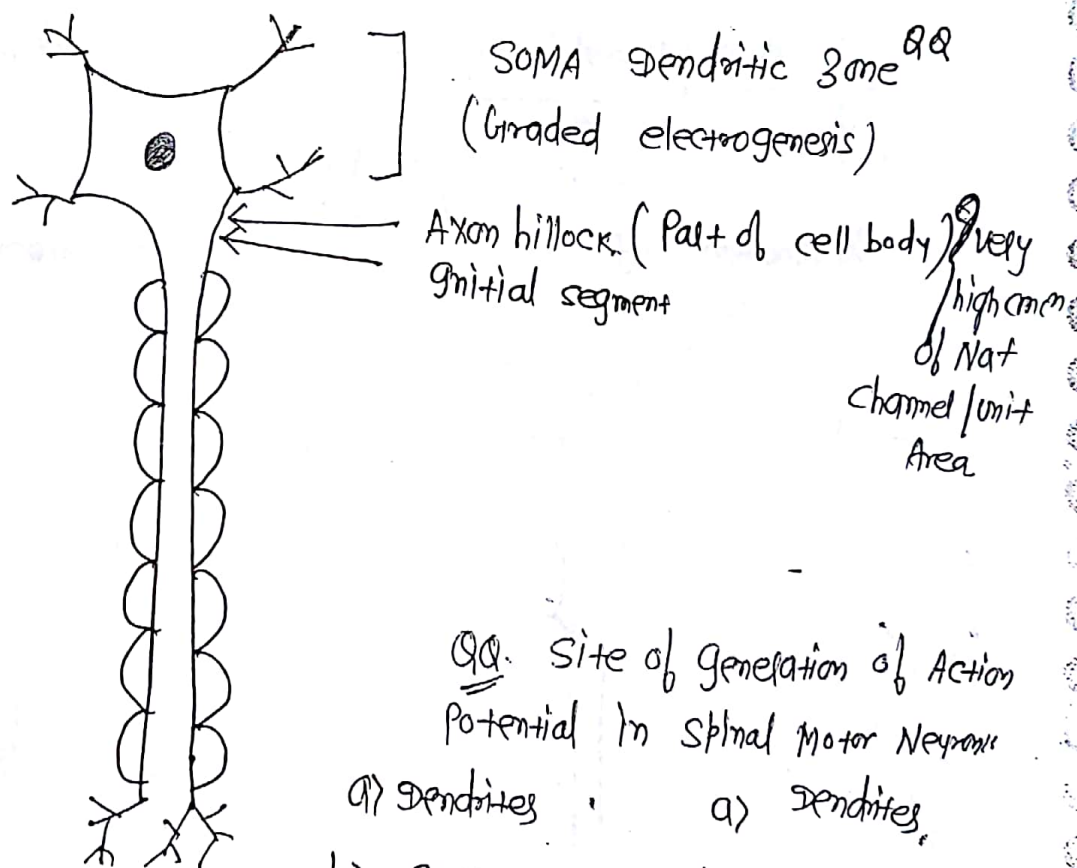 SOMA Dendritic Zone QQ
(Graded electrogenesis)
Axon hillock (Part of cell body) very
Initial segment
high concn
of Na+
Channel/unit
Area
QQ. Site of generation of Action
Potential in Spinal Motor Neurons
a) Dendrites
a) Dendrites